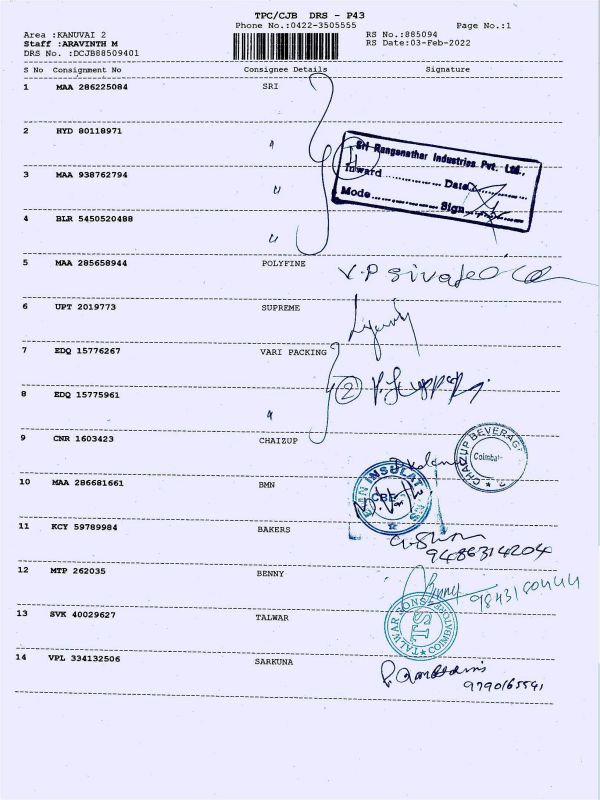 TPC/CJB DRS - P43
Phone No.:0422-3505555 Page No.:1
Area :KANUVAI 2 RS No.:885094
Staff :ARAVINTH M RS Date:03-Feb-2022
DRS No. :DCJB88509401
S No Consignment No Consignee Details Signature
1 MAA 286225084 SRI
2 HYD 80118971 "
Sri Ranganathar Industries Pvt. Ltd.,
Inward Date
Mode Sign
3 MAA 938762794 "
4 BLR 5450520488 "
5 MAA 285658944 POLYFINE
6 UPT 2019773 SUPREME
7 EDQ 15776267 VARI PACKING
8 EDQ 15775961 " 2
9 CNR 1603423 CHAIZUP
CHAIZUP BEVERAG
10 MAA 286681661 BMN
11 KCY 59789984 BAKERS
9486314204
12 MTP 262035 BENNY
Benny 9843180444
13 SVK 40029627 TALWAR
TALWAR SONS COIMBATORE
TS
14 VPL 334132506 SARKUNA
9790165541